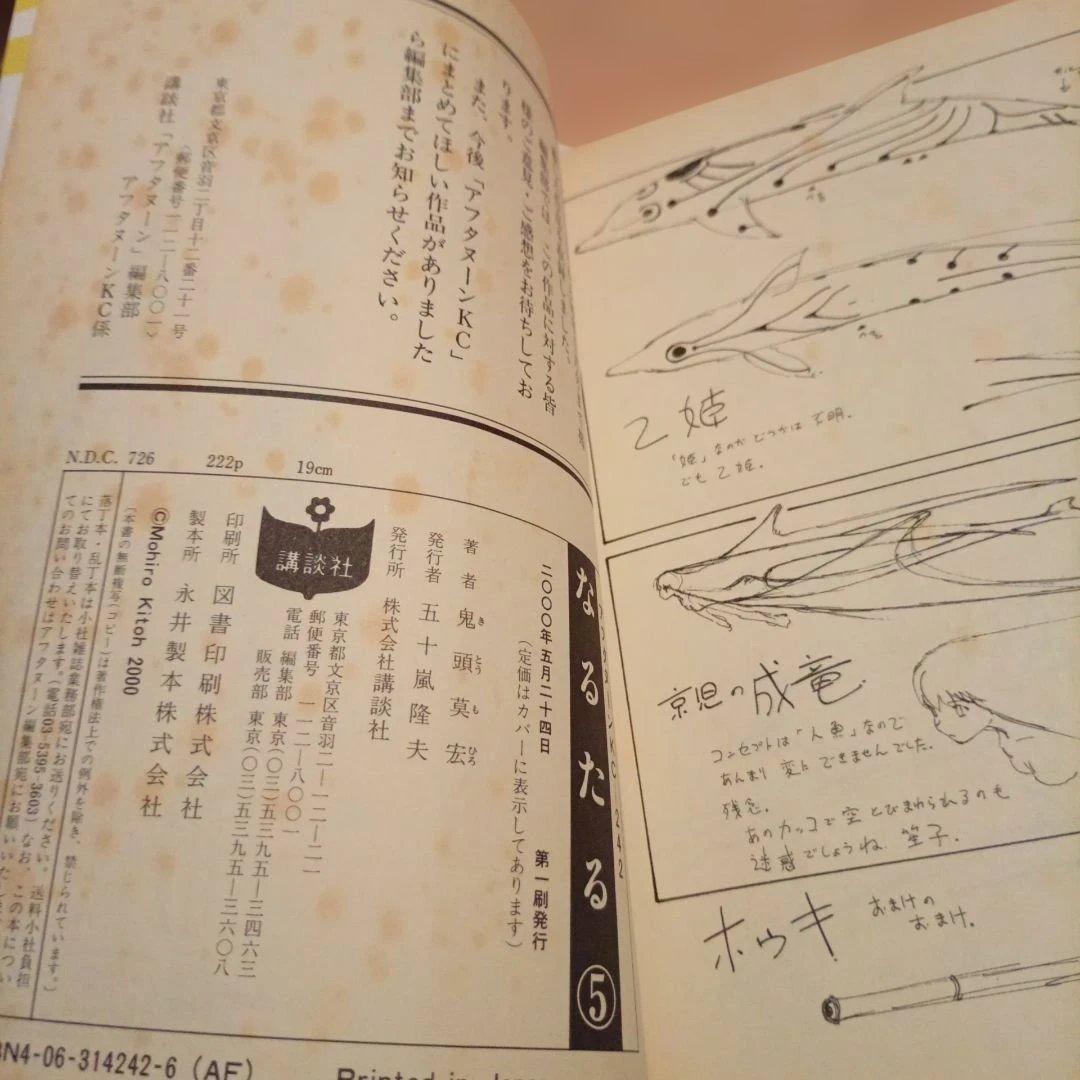 編集部では、この作品に対する皆
様のご意見・ご感想をお待ちしてお
ります。
また、今後「アフタヌーンKC」
にまとめてほしい作品がありました
ら編集部までお知らせください。
東京都文京区音羽二丁目十二番二十一号
(郵便番号一一二―八〇〇一)
講談社「アフタヌーン」編集部
アフタヌーンKC係
N.D.C. 726 222p 19cm
なるたる⑤
KC 242
二〇〇〇年五月二十四日 第一刷発行
(定価はカバーに表示してあります)
著者 鬼頭莫宏
きとうもひろ
発行者 五十嵐隆夫
発行所 株式会社講談社
東京都文京区音羽二―一二―二一
郵便番号 一一二―八〇〇一
電話 編集部 東京(〇三)五三九五―三四六三
販売部 東京(〇三)五三九五―三六〇八
講談社
印刷所 図書印刷株式会社
製本所 永井製本株式会社
©Mohiro Kitoh 2000
(本書の無断複写(コピー)は著作権法上での例外を除き、禁じられています。)
落丁本・乱丁本は小社雑誌業務部宛にお送りください。送料小社負担
にてお取り替えいたします。(電話03-5395-3603)なお、この本につい
てのお問い合わせはアフタヌーン編集部宛にお願いいたします
BN4-06-314242-6 (AF)
Printed in
乙姫
「姫」なのかどうかは不明。
でも乙姫。
京児の成竜
コンセプトは「人魚」なので
あんまり変にできませんでした。
残念。
あのカッコで空とびまわられるのも
迷惑でしょうね 笙子.
ホウキ
おまけの
おまけ。